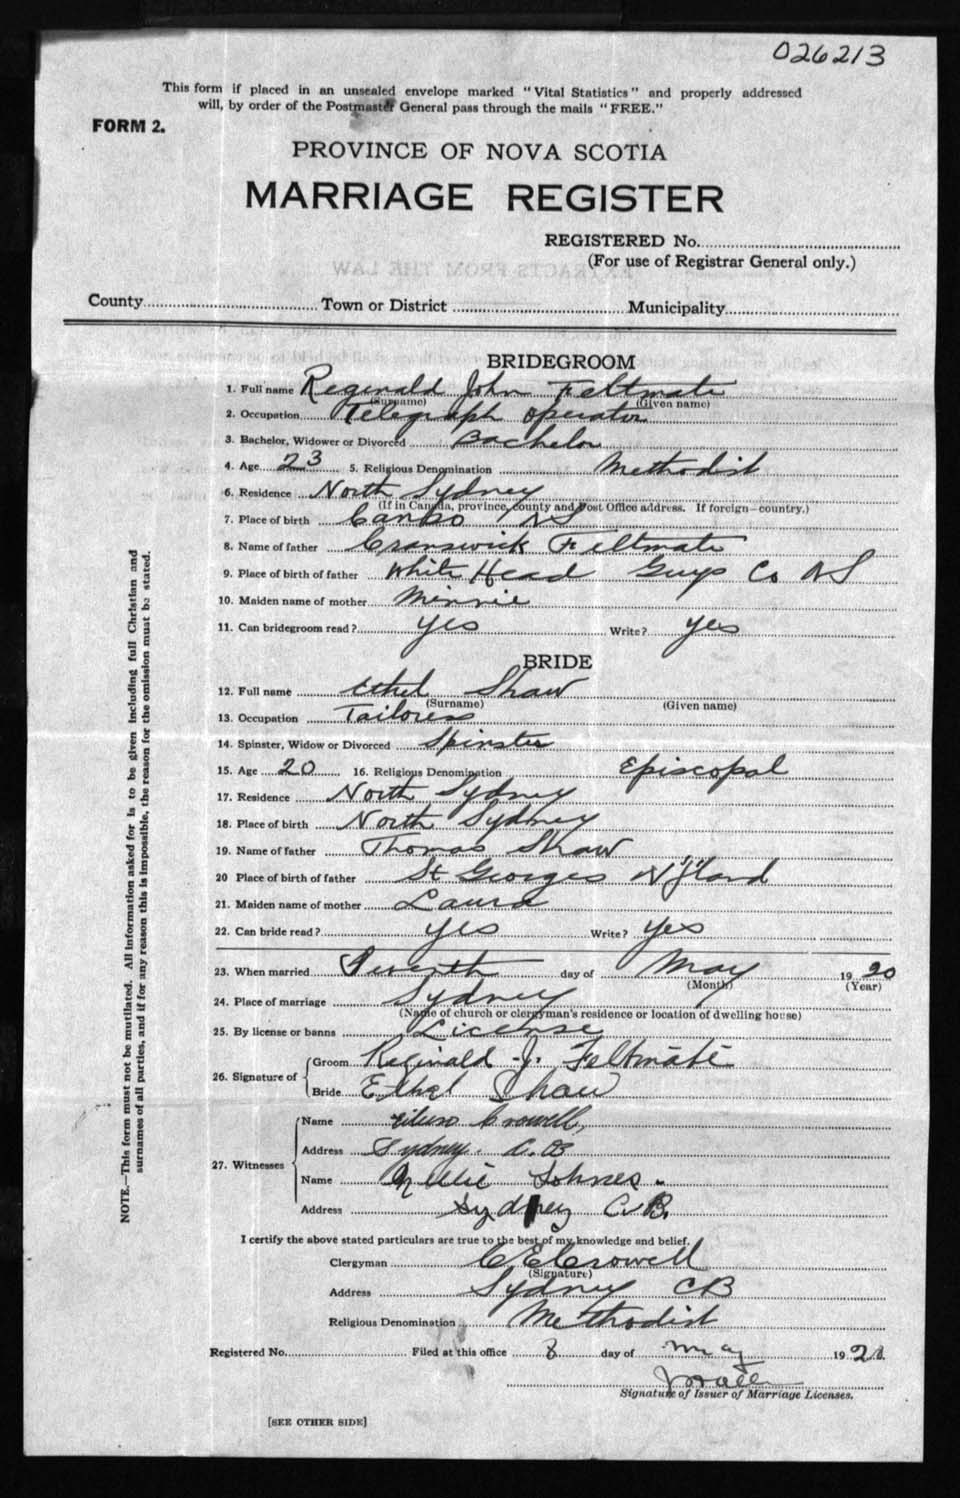 026213
This form if placed in an unsealed envelope marked "Vital Statistics" and properly addressed
will, by order of the Postmaster General pass through the mails "FREE."
FORM 2.
PROVINCE OF NOVA SCOTIA
MARRIAGE REGISTER
REGISTERED No.
(For use of Registrar General only.)
County Town or District Municipality
BRIDEGROOM
1. Full name Reginald John Feltmate
(Surname) (Given name)
2. Occupation Telegraph operator
3. Bachelor, Widower or Divorced Bachelor
4. Age 23 5. Religious Denomination Methodist
6. Residence North Sydney
(If in Canada, province, county and Post Office address. If foreign—country.)
7. Place of birth Canso NS
8. Name of father Cranswick Feltmate
9. Place of birth of father White Head Guys Co NS
10. Maiden name of mother Minnie
11. Can bridegroom read? yes Write? yes
BRIDE
12. Full name Ethel Shaw
(Surname) (Given name)
13. Occupation Tailoress
14. Spinster, Widow or Divorced Spinster
15. Age 20 16. Religious Denomination Episcopal
17. Residence North Sydney
18. Place of birth North Sydney
19. Name of father Thomas Shaw
20 Place of birth of father St Georges Nfland
21. Maiden name of mother Laura
22. Can bride read? yes Write? yes
23. When married Seventh day of May 1920
(Month) (Year)
24. Place of marriage Sydney
(Name of church or clergyman's residence or location of dwelling house)
25. By license or banns License
26. Signature of Groom Reginald J. Feltmate
Bride Ethel Shaw
27. Witnesses
Name Crowell,
Address Sydney. C.B
Name Nellie
Address Sydney C.B.
I certify the above stated particulars are true to the best of my knowledge and belief.
Clergyman C E Crowell
(Signature)
Address Sydney CB
Religious Denomination Methodist
Registered No. Filed at this office 8 day of May 192
Signature of Issuer of Marriage Licenses.
[SEE OTHER SIDE]
NOTE.—This form must not be mutilated. All information asked for is to be given including full Christian and
surnames of all parties, and if for any reason this is impossible, the reason for the omission must be stated.